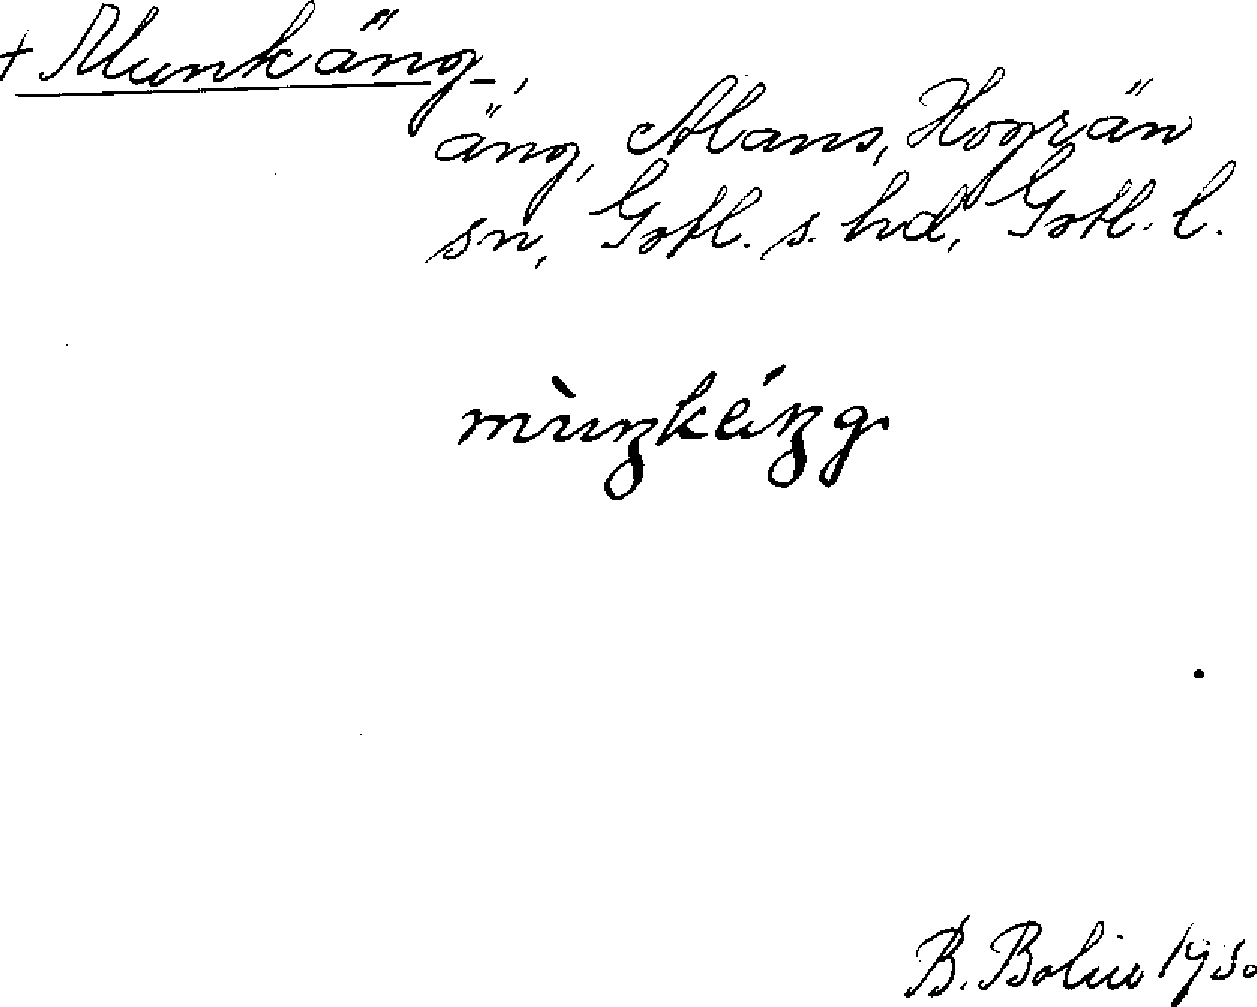 + Munkäng,
äng, Alans, Hogrän
sn, Gotl. s. hd, Gotl. l.
mùŋkä́ŋg.
B. Bolin 1930